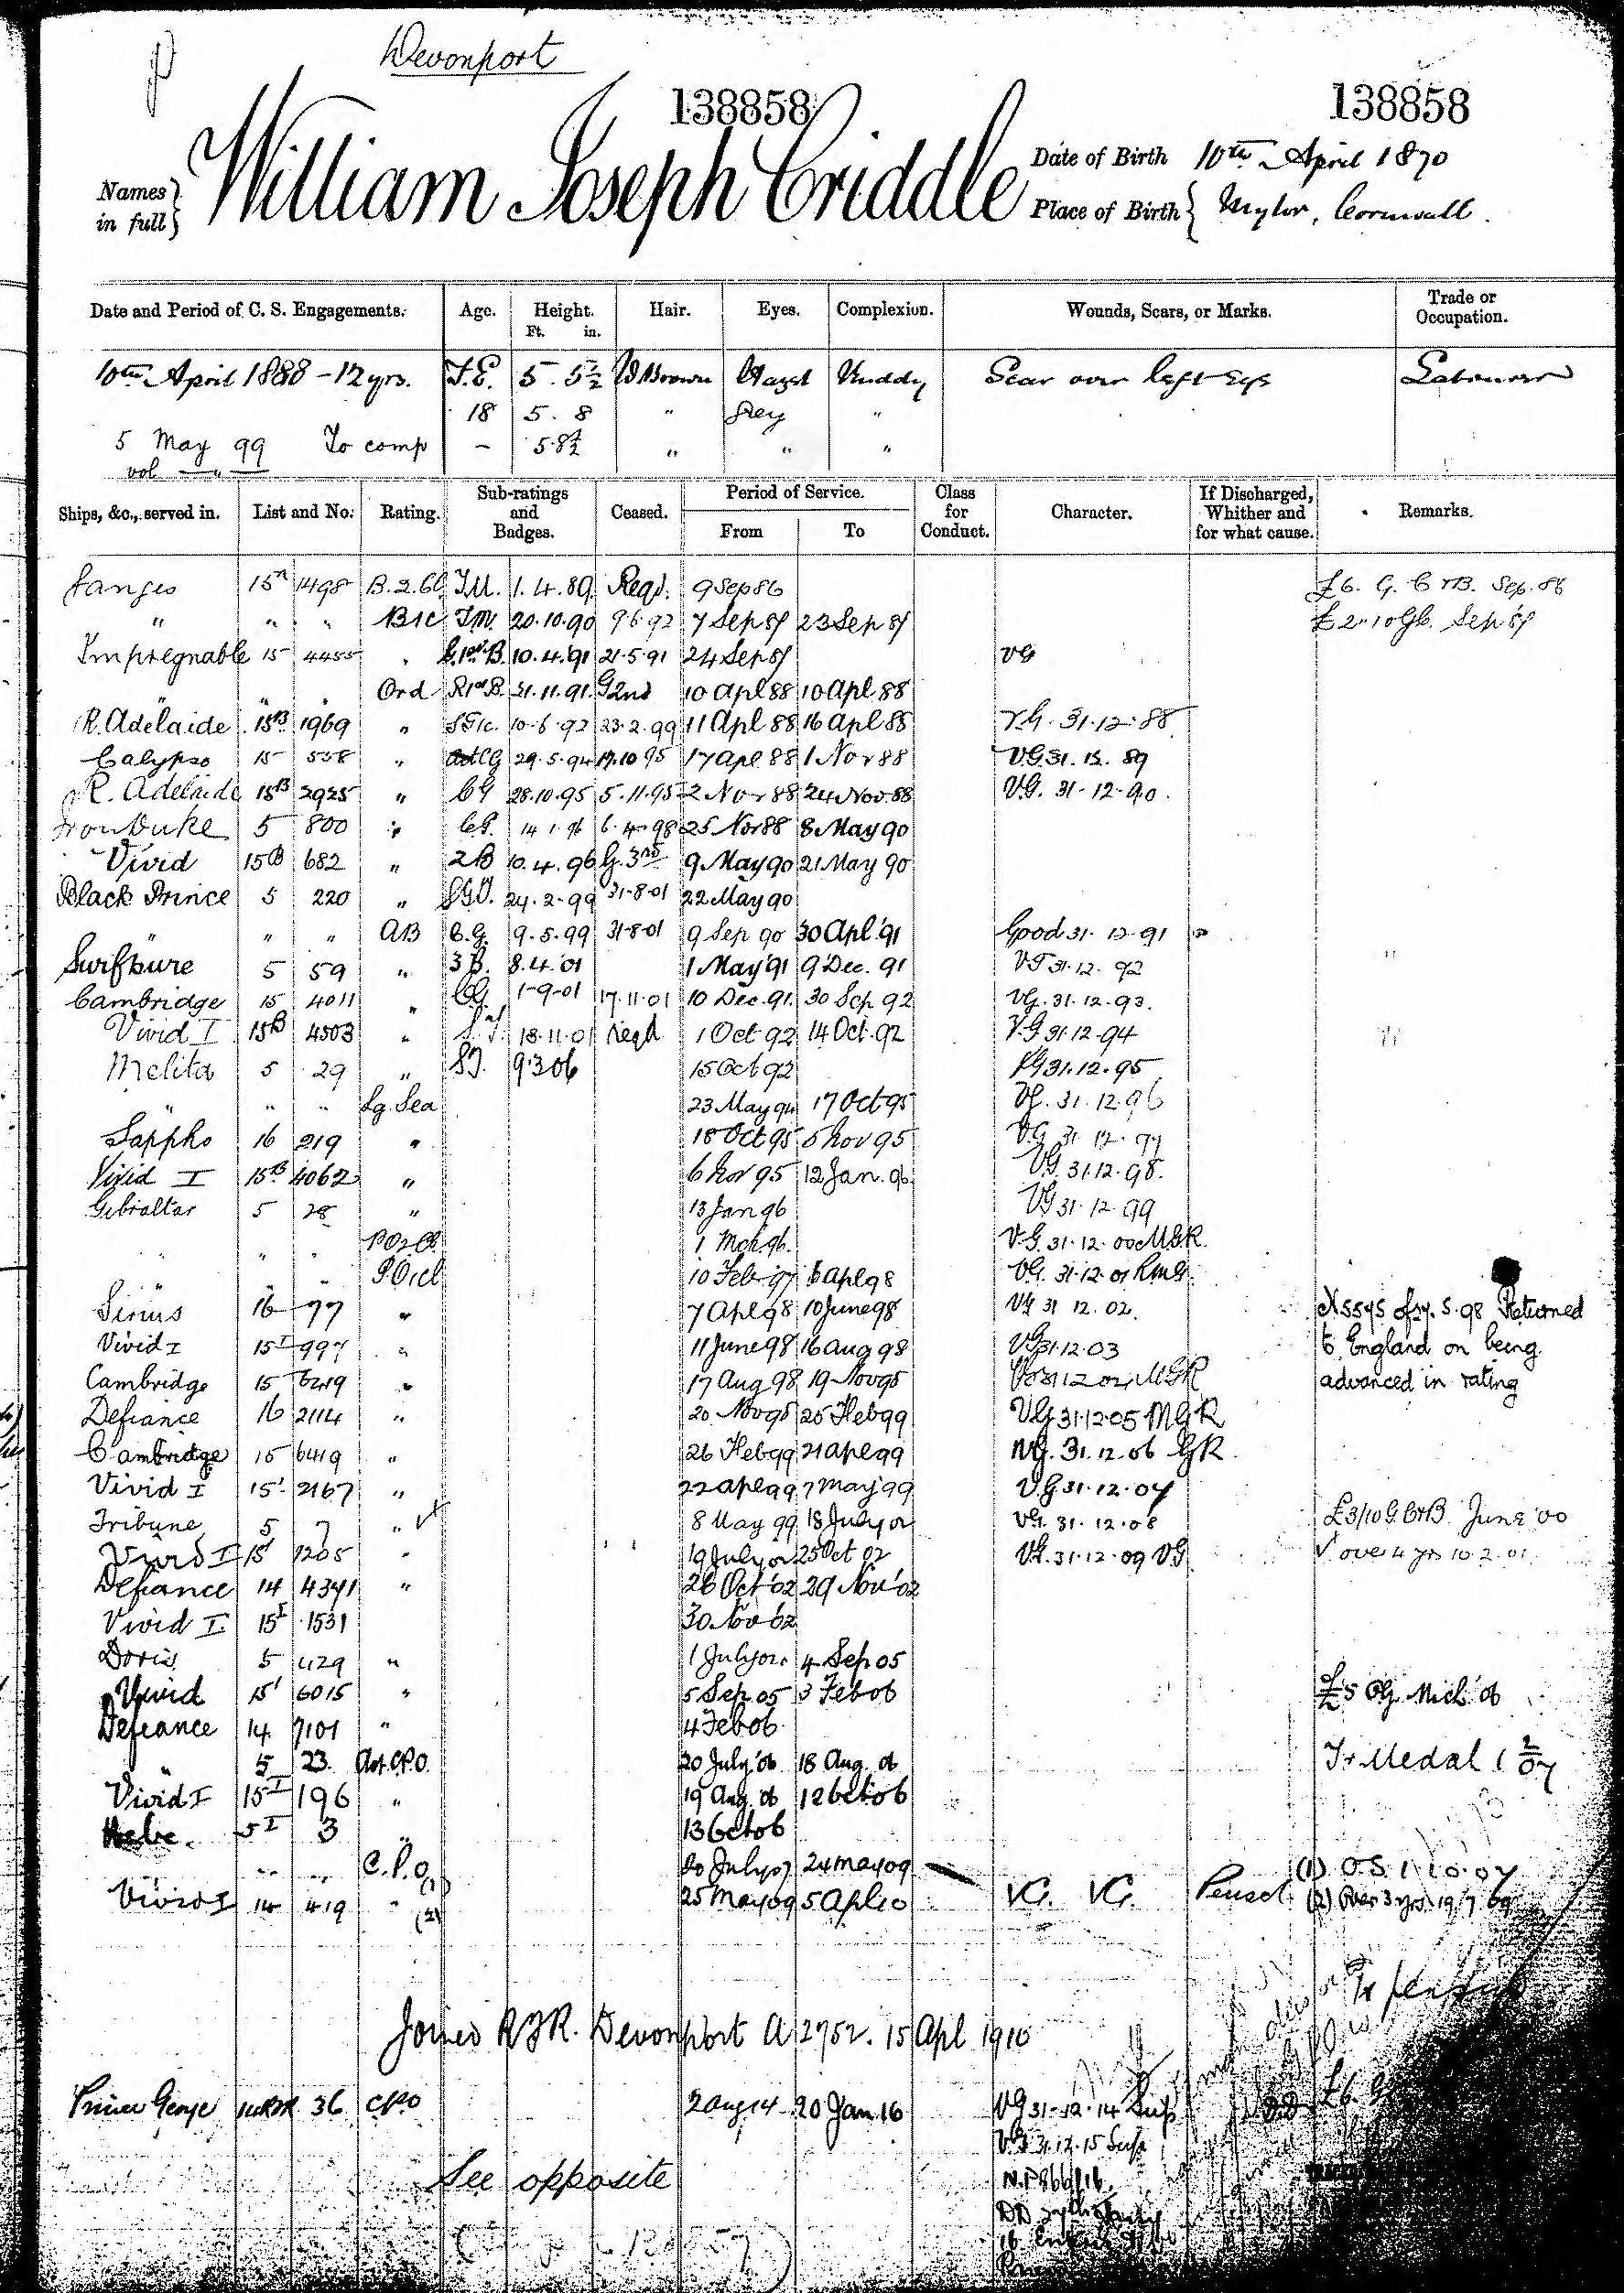 Devonport
138858
138858
Names in full } William Joseph Criddle
Date of Birth 10th April 1870
Place of Birth { Mylor, Cornwall.
Date and Period of C. S. Engagements. Age. Height. Ft. in. Hair. Eyes. Complexion. Wounds, Scars, or Marks. Trade or Occupation.
10th April 1888 - 12 yrs. 5. 5½ Brown Hazel Ruddy Scar over left eye Labourer
18 5. 8 " Grey "
5 May 99 To comp - 5.8½ " " "
vol "
Ships, &c., served in. List and No. Rating. Sub-ratings and Badges. Ceased. Period of Service. From To Class for Conduct. Character. If Discharged, Whither and for what cause. Remarks.
Ganges 15A 1498 B.2.Cl T.M. 1.4.89 Reqd. 9 Sep 86 £6. G. C & B. Sep. 86
" " " B1C T.M. 20.10.90 9.6.92 7 Sep 87 23 Sep 87 £2.10 Gb. Sep 87
Impregnable 15 4455 G.1st B. 10.4.91 21.5.91 24 Sep 87 VG
" " Ord R1st B. 21.11.91 G2nd 10 Apl 88 10 Apl 88
R. Adelaide 15B 1969 " 10.6.92 23.2.99 11 Apl 88 16 Apl 88 V.G. 31.12.88
Calypso 15 558 " CG 29.5.94 17.10.95 17 Apl 88 1 Nov 88 VG 31.12.89
R. Adelaide 15B 2925 " CG 28.10.95 5.11.95 2 Nov 88 24 Nov 88 V.G. 31-12-90.
Iron Duke 5 800 " CG. 14.1.96 6.4.98 25 Nov 88 8 May 90
Vivid 15B 682 " 2B 10.4.96 G. 3rd 9 May 90 21 May 90
Black Prince 5 220 " 24.2.99 31-8-01 22 May 90
" " " AB C.G. 9.5.99 31-8-01 9 Sep 90 30 Apl '91 Good 31.12.91
Swiftsure 5 59 " 3 B. 8.4.01 1 May 91 9 Dec. 91 VG 31.12.92
Cambridge 15 4011 " CG. 1-9-01 17.11.01 10 Dec. 91 30 Sep 92 VG. 31.12.93.
Vivid I 15B 4503 " 18.11.01 reqd 1 Oct 92 14 Oct. 92 V.G 31.12.94
Melita 5 29 " S.T. 9.3.06 15 Oct 92 VG 31.12.95
" " " Lg. Sea 23 May 94 17 Oct 95 VG. 31.12.96
Sappho 16 219 " 18 Oct 95 5 Nov 95 V.G 31.12.97
Vivid I 15B 4062 " 6 Nov 95 12 Jan. 96 VG 31.12.98.
Gibraltar 5 28 " 13 Jan 96 VG 31.12.99
" " " PO2Cl. 1 Mch 96. V.G. 31.12.00 MGR.
" " " PO1Cl 10 Feb 97 6 Apl 98 VG. 31.12.01 RMG.
Sirius 16 77 " 7 Apl 98 10 June 98 VG 31 12.02. Returned
Vivid I 15I 997 " 11 June 98 16 Aug 98 VG 31.12.03 to England on being
Cambridge 15 6219 " 17 Aug 98 19 Nov 98 MGR advanced in rating
Defiance 16 2114 " 20 Nov 98 25 Feb 99 VG 31.12.05 MGR
Cambridge 15 6419 " 26 Feb 99 21 Apl 99 VG. 31.12.06 GR.
Vivid I 15I 2167 " 22 Apl 99 7 May 99 V.G 31.12.07
Tribune 5 7 " ✓ 8 May 99 18 July 02 VG. 31.12.08 £3/10 G. C&B. June '00
Vivid I 15I 1205 " 19 July 02 25 Oct 02 VG. 31.12.09 VG ✓ over 4 yrs 10.2.01
Defiance 14 4341 " 26 Oct '02 29 Nov '02
Vivid I. 15I 1531 30 Nov 02
Doris 5 429 " 4 Sep 05
Vivid 15I 6015 " 5 Sep 05 3 Feb 06 £5 Mch '06
Defiance 14 7101 " 4 Feb 06
" 5 23 Act. CPO. 20 July '06 18 Aug. 06 Medal
Vivid I 15I 196 " 19 Aug 06 12 Oct 06
Hebe. 5I 3 " 13 Oct 06
" " C.P.O. (1) 20 July 07 24 May 09 (1) O.S. 1.10.07
Vivid I 14 419 " (2) 25 May 09 5 Apl 10 VG. VG. Pensd. (2) Over 3 yrs 19.7.09
Joined R.F.R. Devonport A 2752. 15 Apl 1910
Prince George 36 CPO 2 Aug 14 20 Jan 16 VG 31-12-14 Sup
VG 31.12.15 Sup
See opposite
N.P. 866/16
DD